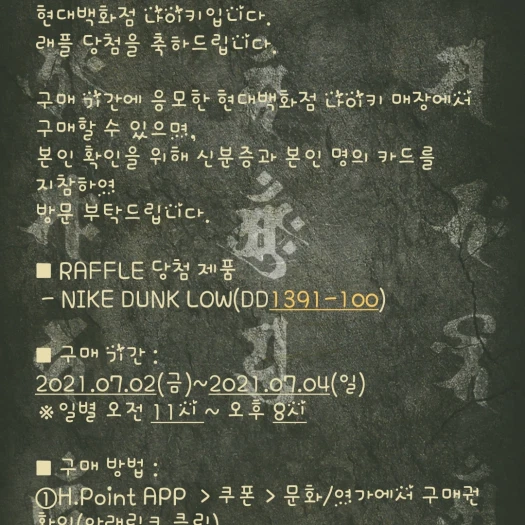 현대백화점 나이키입니다.
래플 당첨을 축하드립니다.
구매 기간에 응모한 현대백화점 나이키 매장에서
구매할 수 있으며,
본인 확인을 위해 신분증과 본인 명의 카드를
지참하여
방문 부탁드립니다.
■ RAFFLE 당첨 제품
- NIKE DUNK LOW(DD1391-100)
■ 구매 기간 :
2021.07.02(금)~2021.07.04(일)
※ 일별 오전 11시 ~ 오후 8시
■ 구매 방법 :
①H.Point APP > 쿠폰 > 문화/여가에서 구매권
확인(아래링크 클릭)